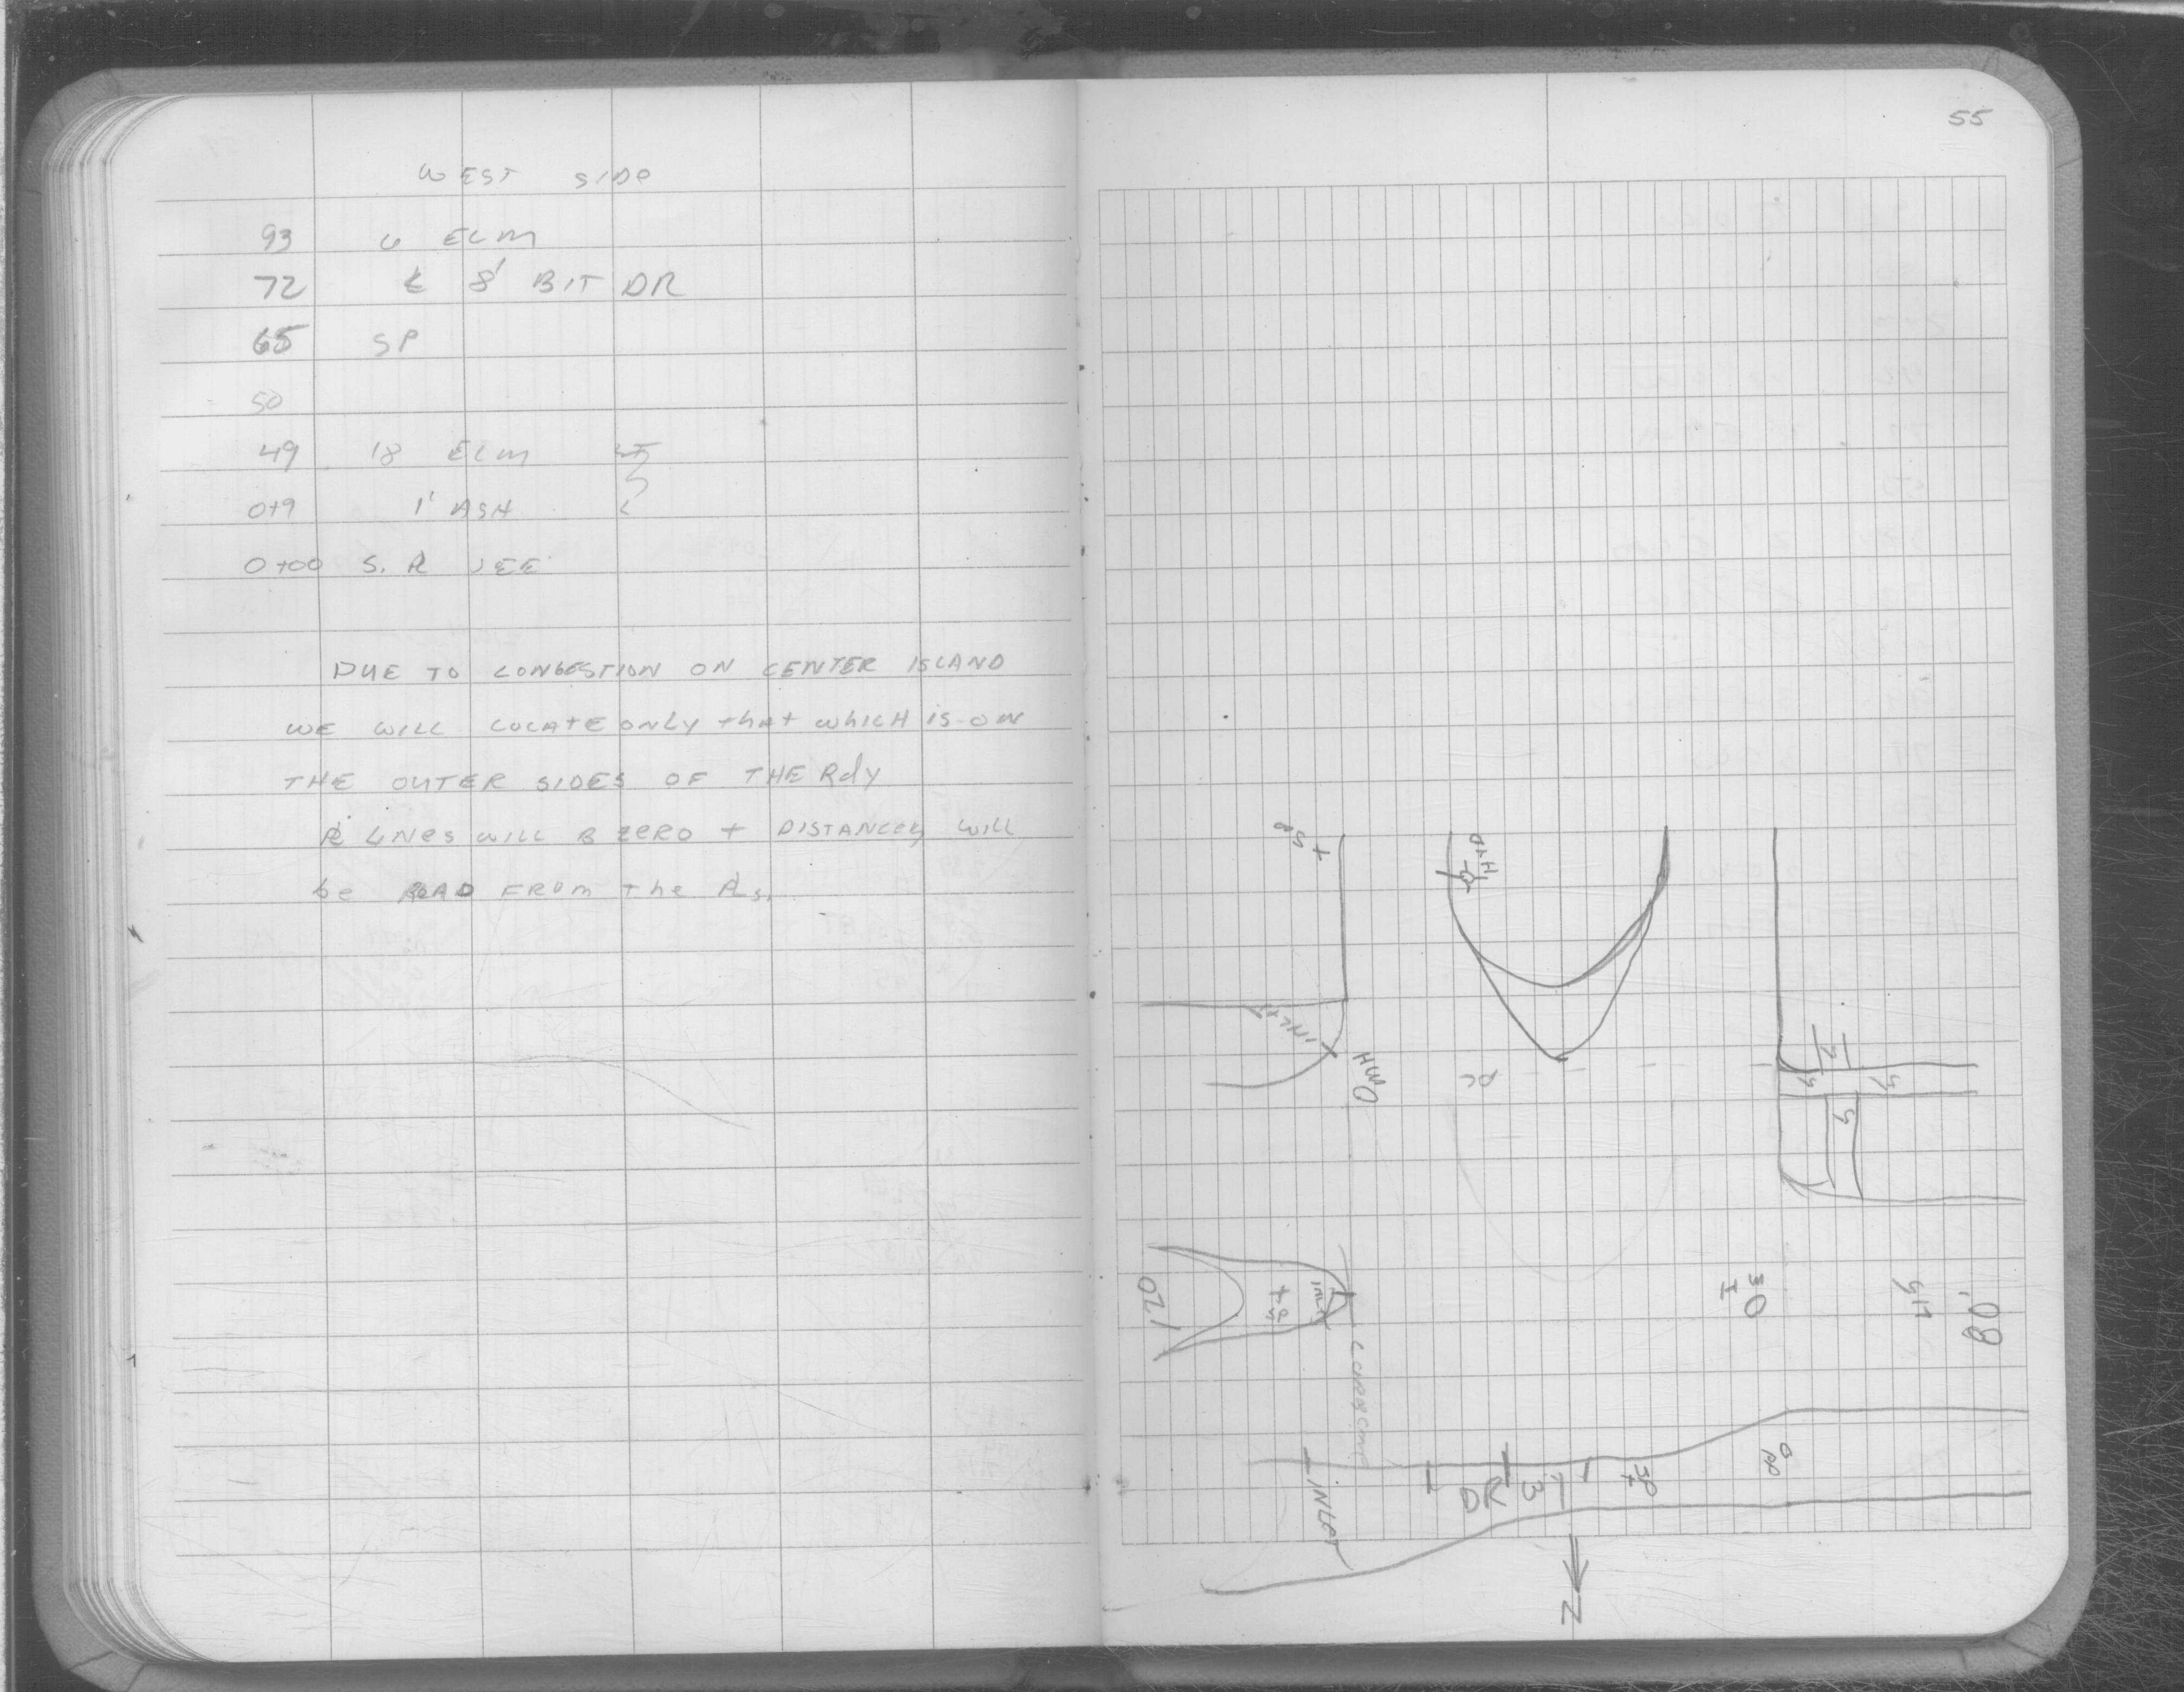 55
WEST SIDE
93 6 ELM
72 ℄ 8' BIT DR
65 SP
50
49 18 ELM
0+9 1' ASH
0+00 S. ℞ SEE
DUE TO CONGESTION ON CENTER ISLAND
WE WILL LOCATE ONLY thAt WhICH IS ON
THE OUTER SIDES OF THE Rdy
LINES WILL B ZERO + DISTANCES WILL
be READ FROM the
SP
HYD
INLET
MH
4
4
4
120
INLET
30
80'
CURB
DR
31
SP
INLET
N